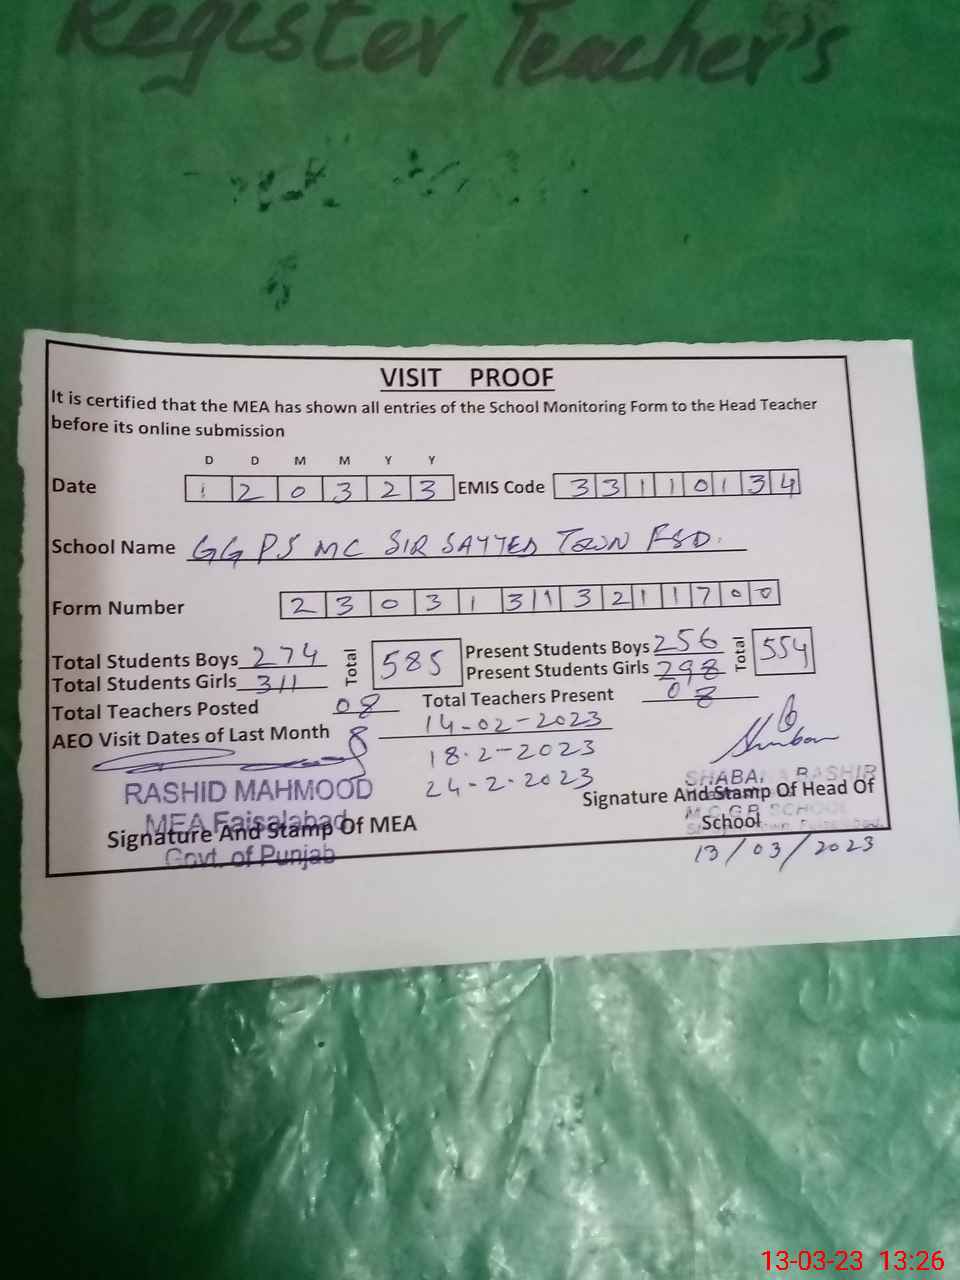 Register Teacher's
VISIT PROOF
It is certified that the MEA has shown all entries of the School Monitoring Form to the Head Teacher
before its online submission
D D M M Y Y
Date 1 2 0 3 2 3 EMIS Code 3 3 1 1 0 1 3 4
School Name GGPS MC SIR SAYYED TOWN FSD.
Form Number 2 3 0 3 1 3 1 3 2 1 1 7 0 0
Total Students Boys 274 Total 585 Present Students Boys 256 Total 554
Total Students Girls 311 Present Students Girls 298
Total Teachers Posted 08 Total Teachers Present 08
AEO Visit Dates of Last Month 14-02-2023
18-2-2023
24-2-2023
RASHID MAHMOOD
MEA Faisalabad
Govt. of Punjab
Signature And Stamp Of MEA
SHABANA BASHIR
Signature And Stamp Of Head Of
School
M.C.G.P. SCHOOL
13/03/2023
13-03-23 13:26